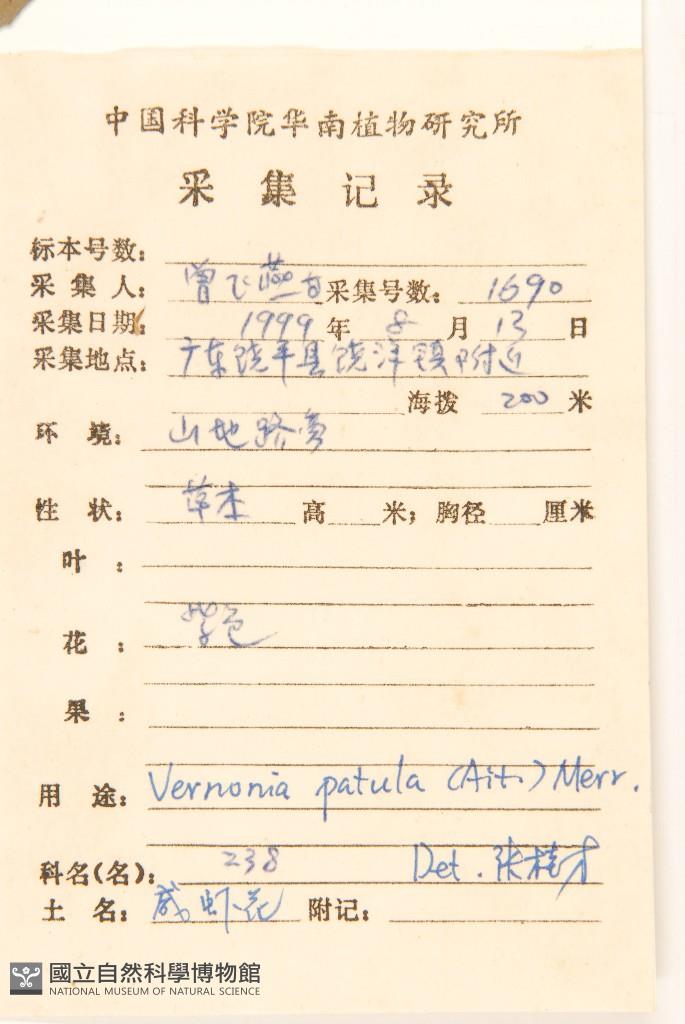 中国科学院华南植物研究所
采集记录
标本号数:
采集人: 曾飞燕 采集号数: 1690
采集日期: 1999 年 8 月 13 日
采集地点: 广东饶平县饶洋镇附近
海拨 200 米
环境: 山地路旁
性状: 草本 高 米; 胸径 厘米
叶:
花: 紫色
果:
用途: Vernonia patula (Ait.) Merr.
科名(名): 238 Det. 张桂才
土名: 咸虾花 附记:
國立自然科學博物館
NATIONAL MUSEUM OF NATURAL SCIENCE